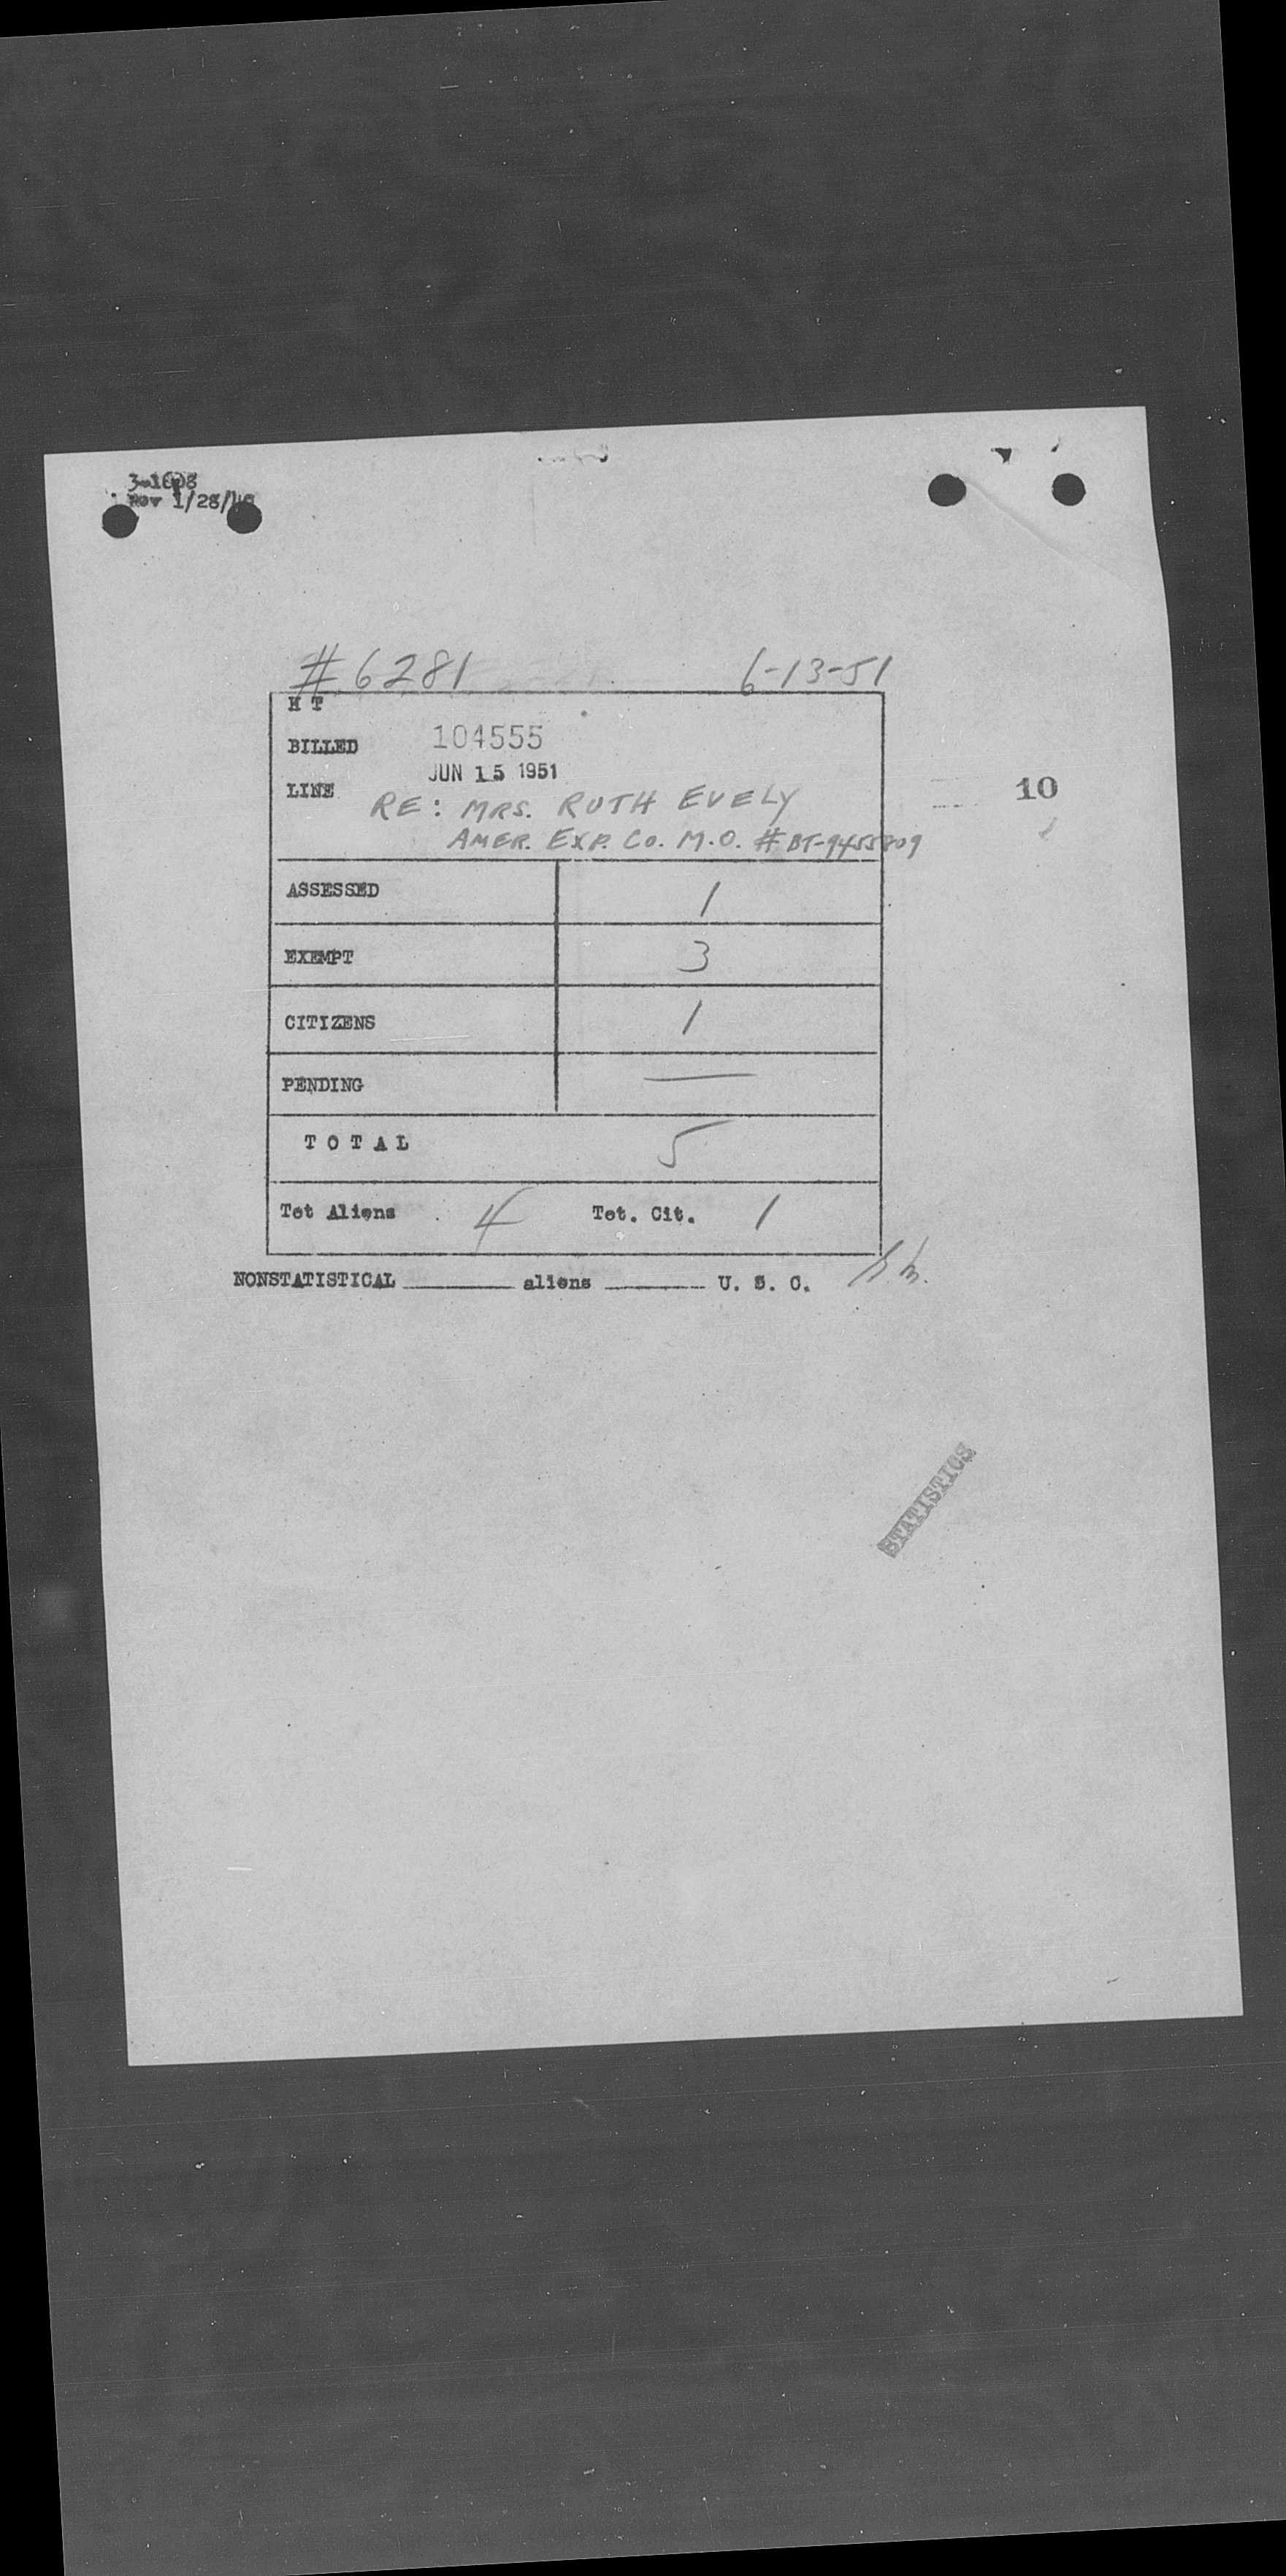 3-1608
Rev 1/28/48
#6281 6-13-51
H T
BILLED 104555
JUN 15 1951
LINE
10
RE: MRS. RUTH EVELY
AMER. EXP. CO. M.O. # BT-9455809
ASSESSED 1
EXEMPT 3
CITIZENS 1
PENDING —
TOTAL 5
Tot Aliens 4 Tot. Cit. 1
NONSTATISTICAL ________ aliens ________ U. S. C.
STATISTICS